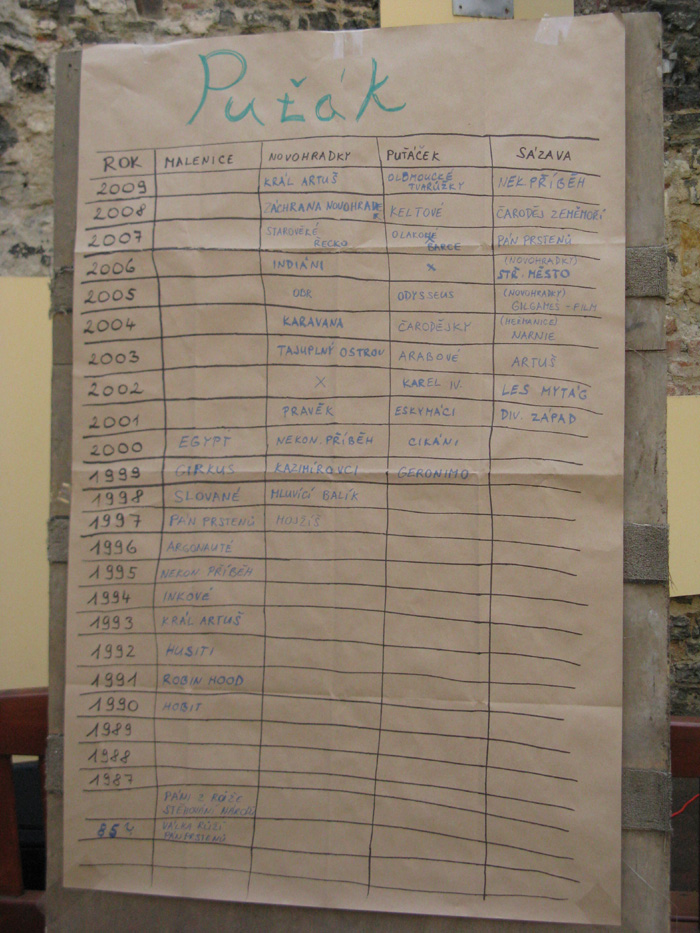 Puťák
ROK MALENICE NOVOHRADKY PUŤÁČEK SÁZAVA
2009 KRÁL ARTUŠ OLOMOUCKÉ TVARŮŽKY NEK PŘÍBĚH
2008 ZÁCHRANA NOVOHRADE KELTOVÉ ČARODĚJ ZEMĚMOŘÍ
2007 STAROVĚKÉ ŘECKO PÁN PRSTENŮ
2006 INDIÁNI X (NOVOHRADKY) STŘ. MĚSTO
2005 ODYSSEUS (NOVOHRADKY) GILGAMEŠ - FILM
2004 KARAVANA ČARODĚJKY (HEŘMANICE) NARNIE
2003 TAJUPLNÝ OSTROV ARABOVÉ ARTUŠ
2002 X KAREL IV. LES MYTÁG
2001 PRAVĚK ESKYMÁCI DIV. ZÁPAD
2000 EGYPT NEKON. PŘÍBĚH CIKÁNI
1999 CIRKUS KAZIMÍROVCI GERONIMO
1998 SLOVANÉ MLUVÍCÍ BALÍK
1997 PÁN PRSTENŮ MOJŽÍŠ
1996 ARGONAUTÉ
1995 NEKON PŘÍBĚH
1994 INKOVÉ
1993 KRÁL ARTUŠ
1992 HUSITI
1991 ROBIN HOOD
1990 HOBIT
1989
1988
1987
PÁNI Z RŮŽE
STĚHOVÁNÍ NÁRODŮ
85 VÁLKA RŮŽÍ
PÁN PRSTENŮ